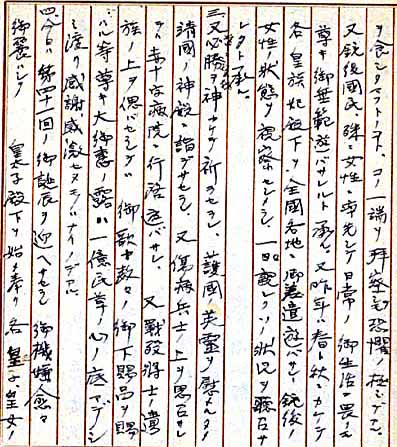 ヲ食シタマフト承ル、コノ一端ヲ拝察スルモ恐懼ノ極ミデアル
又銃後國民、殊ニ女性ニ率先シテ日常ノ御生活ニ畏
尊キ御垂範遊バサレルト承ル又昨年ノ春ト秋ニカケテ
各皇族妃殿下ヲ全国各地ニ御差遣遊バサレ銃後
女性ノ状態ヲ視察セシメラレ、一々親シクソノ状況ヲ聴召サ
レタト承ル。
三、又必勝ヲ神カケテ祈ラセラレ、護國ノ英霊ヲ慰メ
靖國ノ神域ニ詣デサセラレ、又傷病兵士ノ上ヲ思召サレ
テハ赤十字病院ニ行啓遊バサレ、又戦歿将士ノ遺
族ノ上ヲ偲バセラレテハ 御歌ヤ数々ノ御下賜品ヲ賜
ハル等尊キ大御恵ノ露ハ一億民草ノ心ノ底マデシ
ミ渡リ感謝感激セヌモノハナイノデアル
四、今日第四十一回ノ御誕辰ヲ迎ヘサセラレ 御機嫌愈々
御麗ハシク 皇太子殿下ヲ始メ奉リ各皇子、皇女